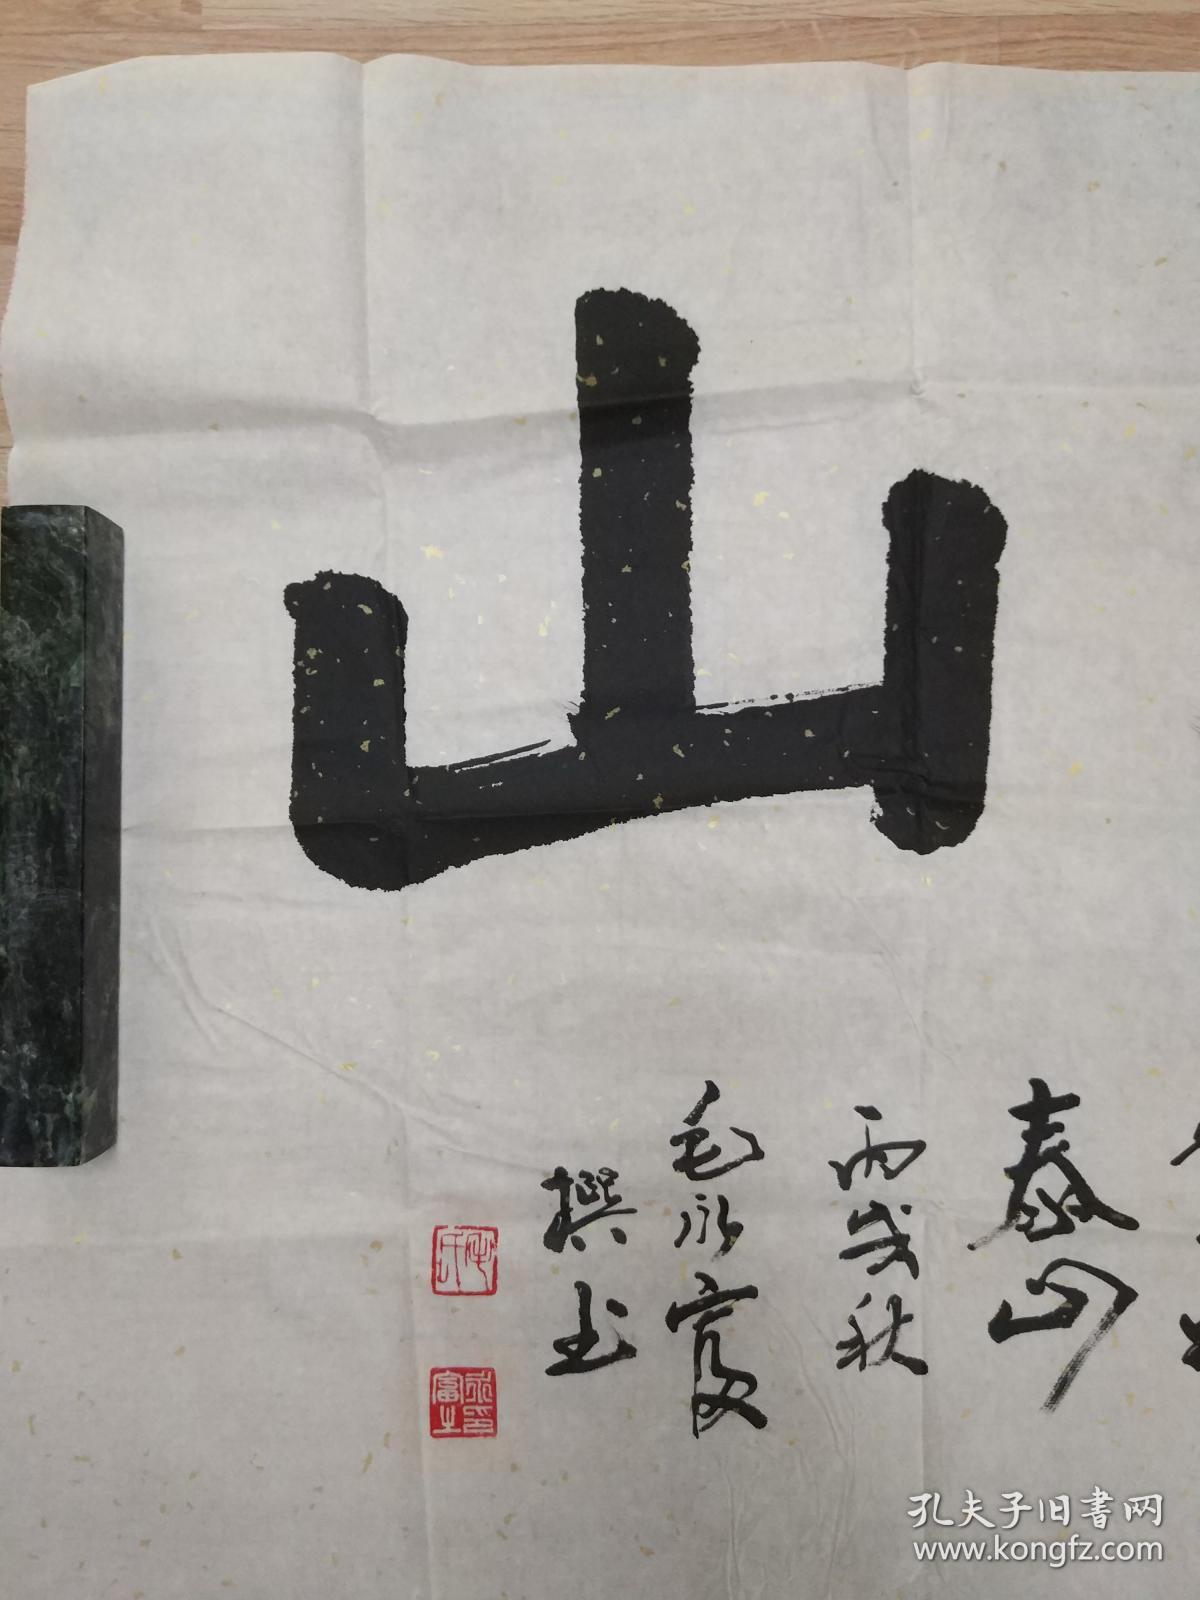 山
泰山
丙戌秋
毛永富
撰书
毛氏
永富之印
孔夫子旧书网
www.kongfz.com